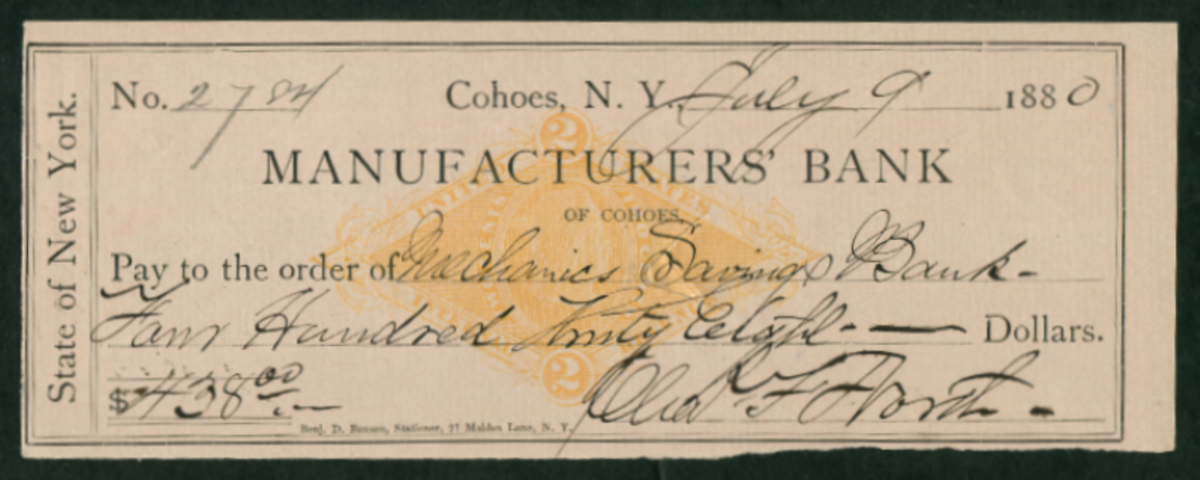 State of New York.
No. 2784 Cohoes, N. Y., July 9 1880
2
MANUFACTURERS' BANK
OF COHOES.
Pay to the order of Mechanics Savings Bank -
Four Hundred Thirty Eight - — Dollars.
$438.00
Chas F North -
2
Benj. D. Benson, Stationer, 77 Malden Lane, N. Y.